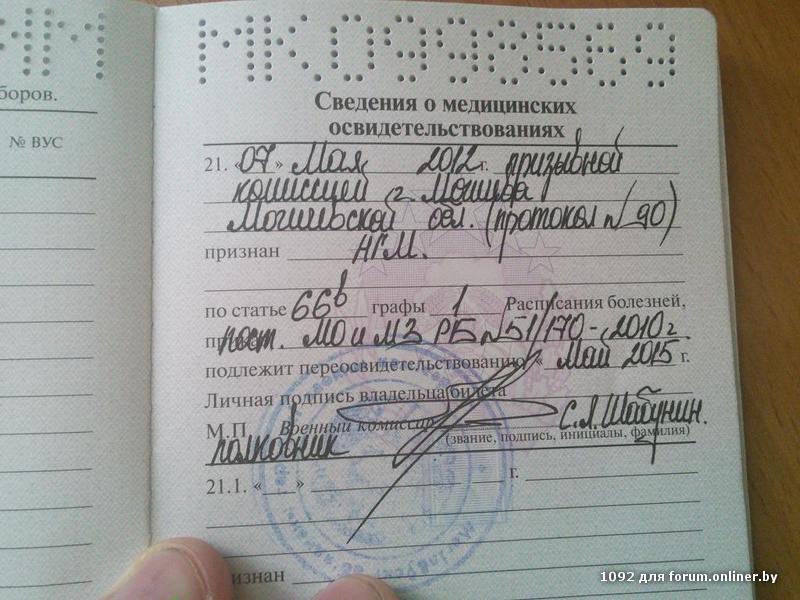 МК 0998569
боров.
№ ВУС
Сведения о медицинских
освидетельствованиях
21. «07» Мая 2012 г. призывной
комиссией г. Могилёва
Могилёвской обл. (протокол №90)
признан НГМ.
по статье 66в графы 1 Расписания болезней,
пост. МО и МЗ РБ №51/170-2010г.
подлежит переосвидетельствованию « Май 2015 г.
Личная подпись владельца билета
М.П. Военный комиссар С.А. Шабунин.
полковник (звание, подпись, инициалы, фамилия)
21.1. «___» г.
изнан
1092 для forum.onliner.by